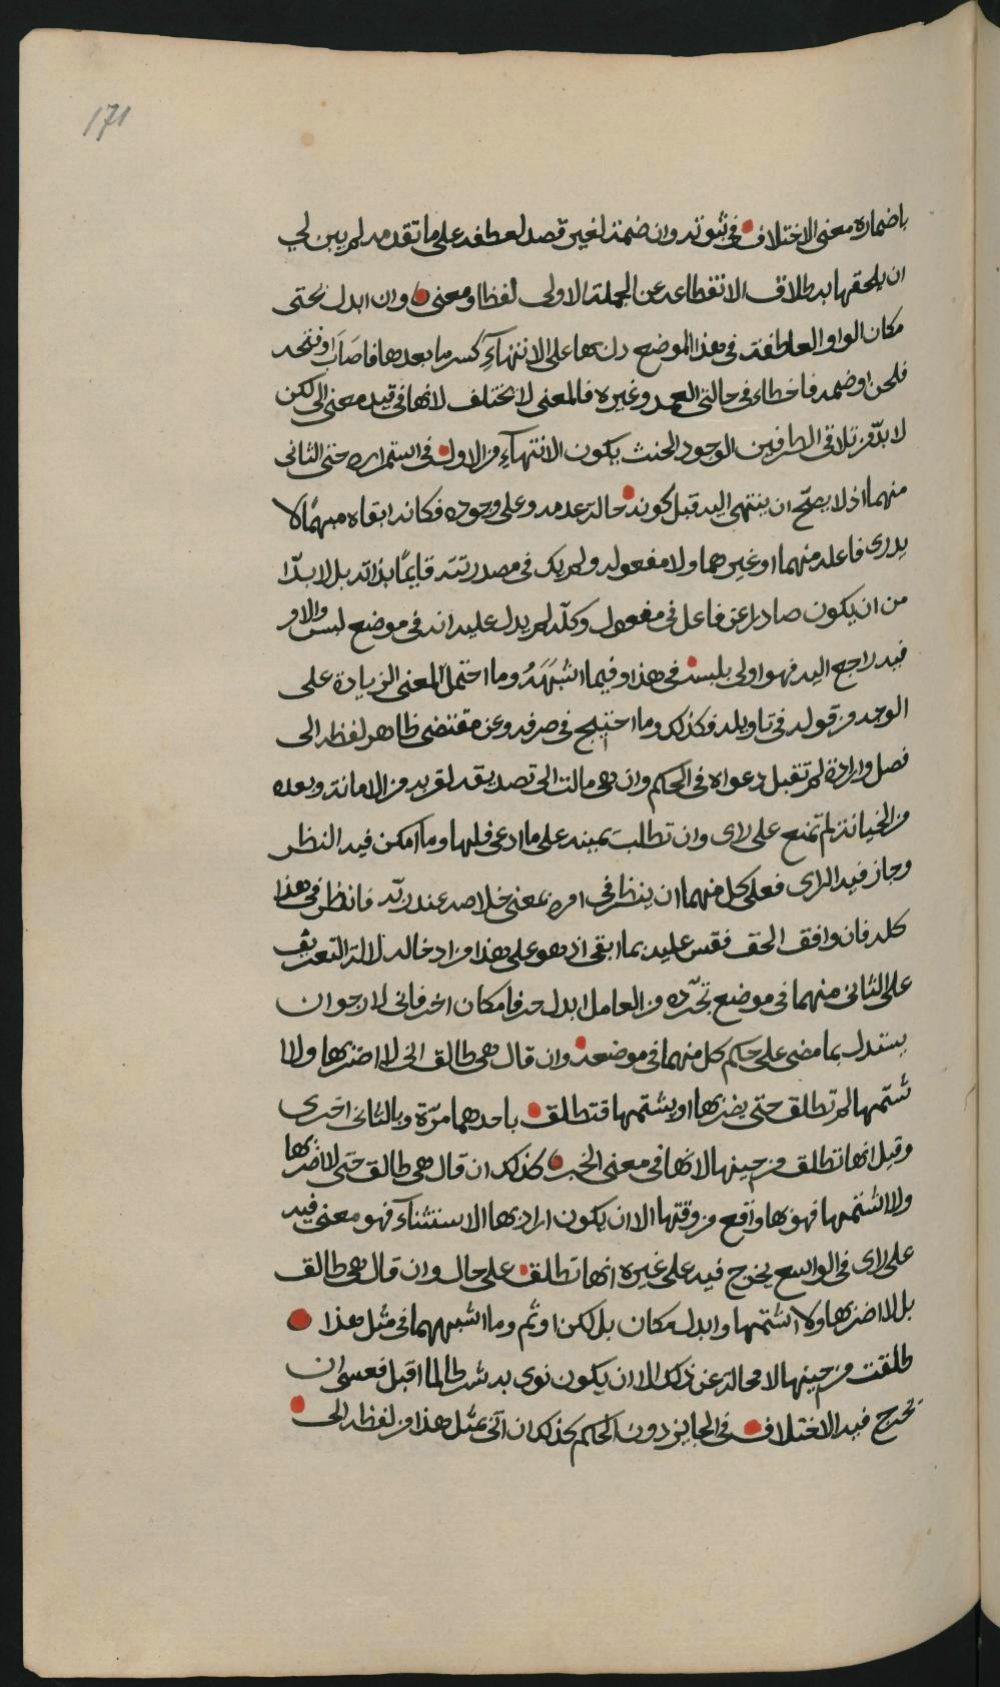 171
باضماره معنى الاختلاف في ثبوته وان ضمنه لغير قصد لعطفه على ما تقدمه لم يبن لي
ان يلحقها به طلاق الانقطاعه عن الجملة الاولى لفظا ومعنى وان ابدل بحتى
مكان الواو العاطفة في هذا الموضع دل بها على الانتهآء كسر ما بعدها فاصَابَ او فتحه
فلحن او ضمه فاخطاء في حالتي العمد وغيره فالمعنى لا يختلف لانها في قيد معنى الى لكن
لا بدّ من تلاقى الطرفين الوجود الحنث يكون الانتهآء من الاول في استمراره حتى الثانى
منهما اذ لا يصحّ ان ينتهى اليه قبل كونه حالة عدمه وعلى وجوده فكانه ابقاه مبهمًا لا
يدرى فاعله منهما او غيرهما ولا مفعوله ولم يك في مصدريته قايمًا بذاته بل لا بدّ
من ان يكون صادرا عن فاعل في مفعول وكله لم يدل عليه انه في موضع لبس والامر
فيه راجع اليه فهو اولى بلبسه في هذا وفيما اشبَهَهُ وما احتمل المعنى الزيادة على
الوجه من قوله في تاويله فكذلك وما احتيج في صرفه وعن مقتضى ظاهر لفظه الى
فصل وارادة لم تقبل دعواه في الحكم وان هى مالت الى تصديقه لقربه من الامانة وبعده
من الخيانة لم تمنع على راى وان تطلب يمينه على ما ادعى فلها وما امكن فيه النظر
وجاز فيه الراى فعلى كل منهما ان ينظر في امره بمعنى خلاصه عند ربّه فانظر في هذا
كله فان وافق الحق فقس عليه بما ابقى اذ هو على هذا من ادخاله لالة التعريف
على الثانى منهما في موضع تجرّده من العامل ابدل حرفا مكان اخر فانى لارجو ان
يستدل بما مضى على حكم كل منهما في موضعه وان قال هى طالق الى لا اضربها ولا
شتمها لم تطلق حتى يضربها او يشتمها فتطلق باحدهما مرّة وبالثانى اخرى
وقيل انها تطلق من حينها لانها في معنى الخبر كذلك ان قال هى طالق حتى لا اضربها
ولا اشتمها فهو بها واقع من وقتها الا ان يكون اراد بها الاستثناء فهو معنى فيه
على راى في الواسع يخرج فيه على غيره انها تطلق على حال وان قال هى طالق
بل لا اضربها ولا اشتمها وابدل مكان بل لكن او ثم وما اشبههما في مثل هذا
طلقت من حينها لا محالة عن ذلك الا ان يكون نوى به شرطا لما اقبل فعسى ان
يخرج فيه الاختلاف في الجايز دون الحكم كذلك ان اتى بمثل هذا من لفظه الى